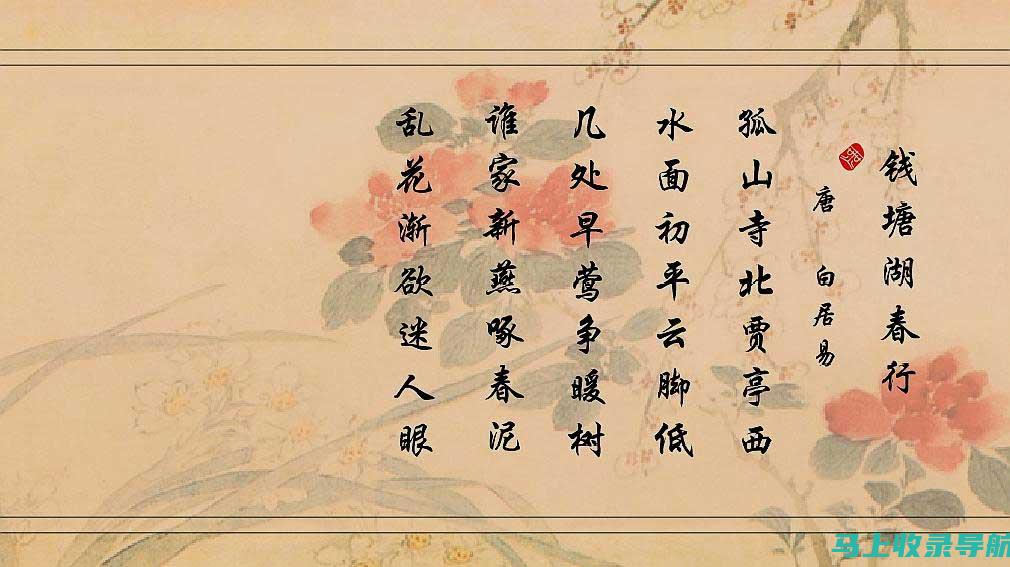 钱塘湖春行
唐 白居易
孤山寺北贾亭西
水面初平云脚低
几处早莺争暖树
谁家新燕啄春泥
乱花渐欲迷人眼
马上收录导航